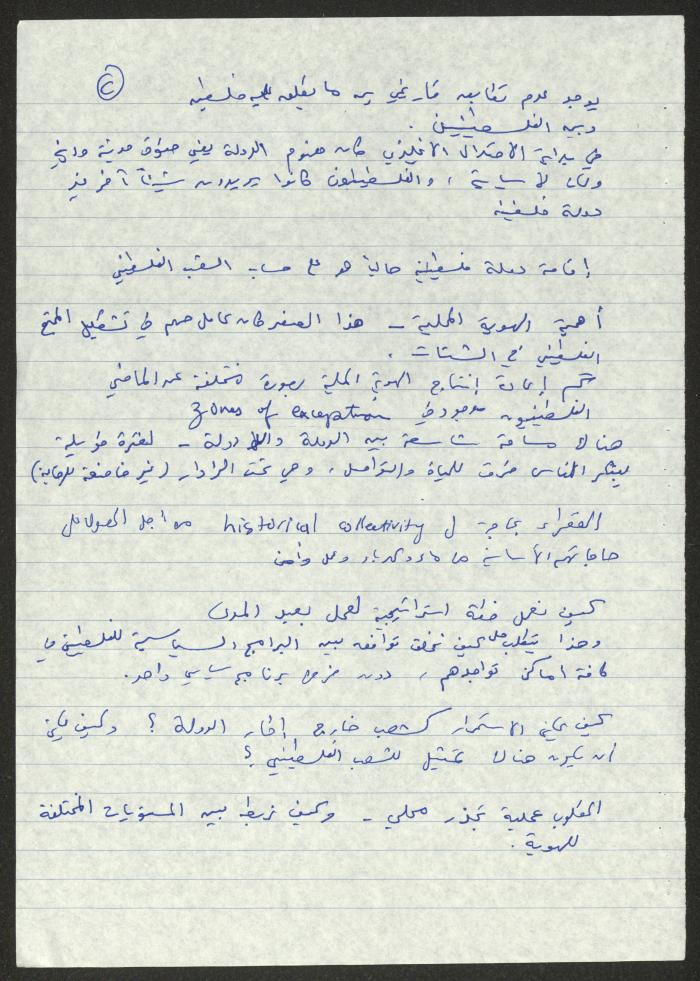 ②
يوجد عدم تطابق تاريخي بين ما يطلق عليه فلسطين
وبين الفلسطينيين.
في بداية الاحتلال الانجليزي كان مفهوم الدولة يعني حقوق مدنية ودينية
وليس لا سياسية، والفلسطينيون كانوا يريدون شيئاً آخر غير
دولة فلسطينية
إقامة دولة فلسطينية حالياً هو على حساب الشعب الفلسطيني
أهمية الهوية المحلية - هذا العنصر كان عامل مهم في تشكيل المجتمع
الفلسطيني في الشتات.
تم إعادة إنتاج الهوية المحلية بصورة مختلفة عن الماضي
الفلسطينيون موجودون في zones of exception
هناك مساحة شاسعة بين الدولة واللادولة - لفترة طويلة
يبتكر الناس طرق للحياة والتواصل، وهي تحت الرادار (غير خاضعة للرقابة)
الفقراء بحاجة ل historical collectivity من اجل الحصول على
حاجاتهم الأساسية من ماء وكهرباء وعمل وأمن
كيف نعمل خطة استراتيجية لعمل بعيد المدى
وهذا يتطلب منا كيف نخلق توافق بين البرامج السياسية للفلسطينيين في
كافة اماكن تواجدهم، دون فرض برنامج سياسي واحد.
كيف يمكن الاستمرار كشعب خارج إطار الدولة؟ وكيف يمكن
أن يكون هناك تمثيل للشعب الفلسطيني؟
المطلوب عملية تجذر محلي - وكيف نربط بين المستويات المختلفة
للهوية.